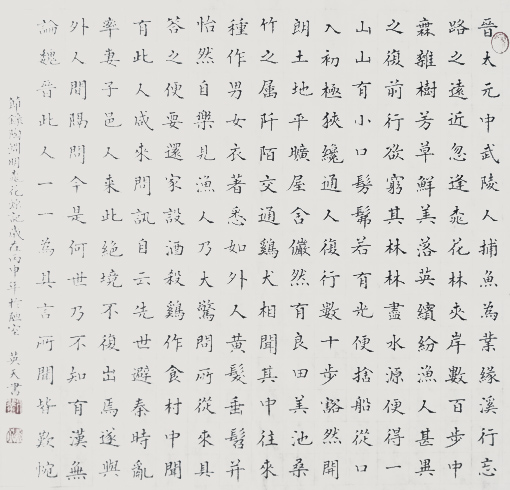 晉太元中武陵人捕魚為業緣溪行忘
路之遠近忽逢桃花林夾岸數百步中
無雜樹芳草鮮美落英繽紛漁人甚異
之復前行欲窮其林林盡水源便得一
山山有小口髣髴若有光便捨船從口
入初極狹纔通人復行數十步豁然開
朗土地平曠屋舍儼然有良田美池桑
竹之属阡陌交通鷄犬相聞其中往來
種作男女衣著悉如外人黃髮垂髫并
怡然自樂見漁人乃大驚問所從來具
答之便要還家設酒殺鷄作食村中聞
有此人咸來問訊自云先世避秦時亂
率妻子邑人來此絕境不復出焉遂與
外人間隔問今是何世乃不知有漢無
論魏晉此人一一為具言所聞皆歎惋
節錄陶淵明桃花源記歲在丙申年於室 書